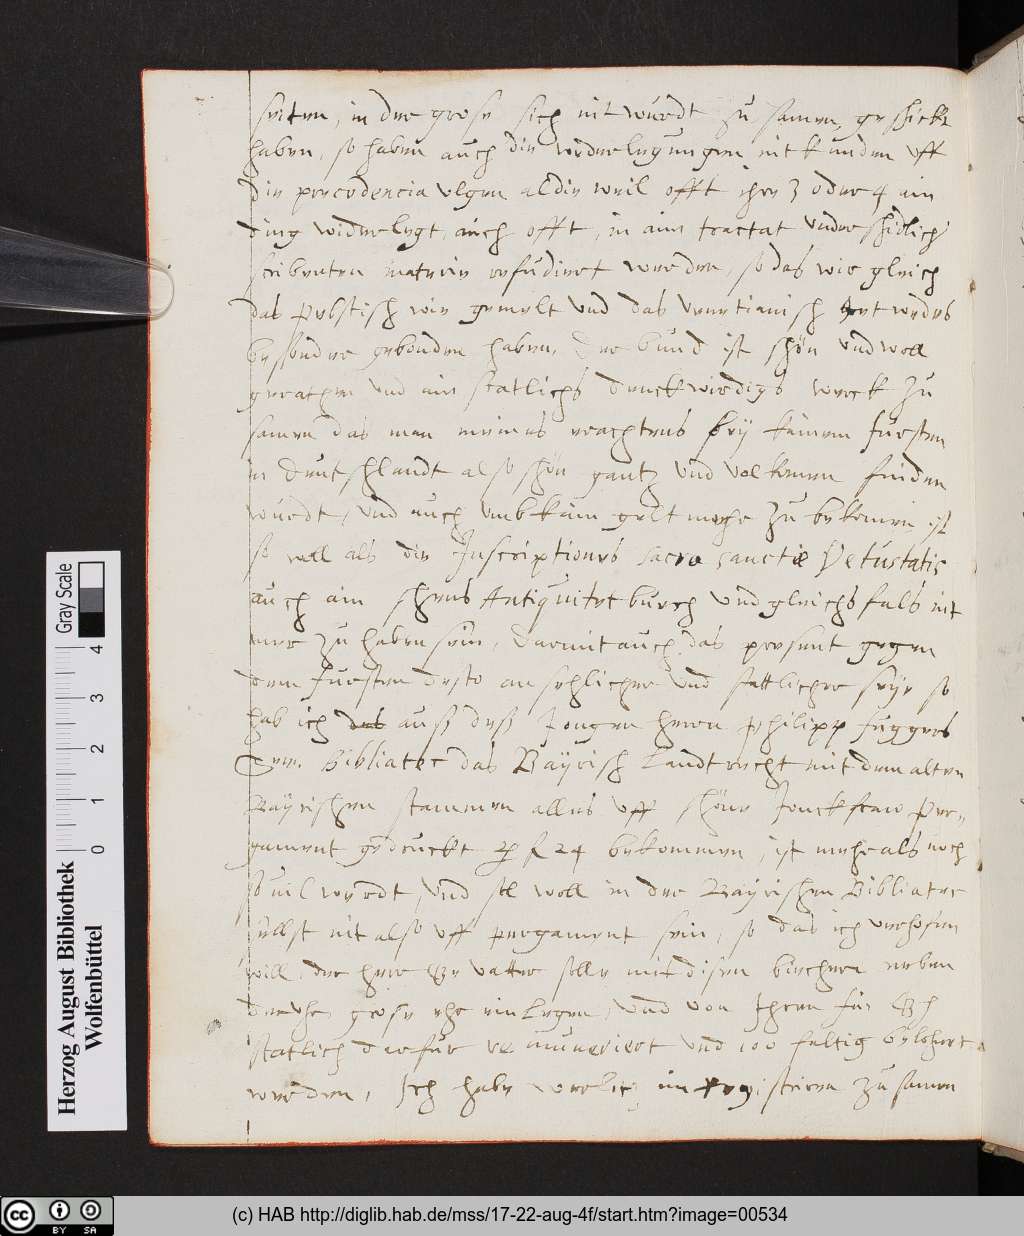 seiten, in der grose sich nit wurdt zu samen geschickt
haben, so haben auch die widerlegungen nit kunden uff
die precedencia volgen aldie weil offt iher 3 oder 4 ain
ding widerlegt, auch offt, in aim tractat underschidlich
scribenten materie refudiert werden, so das wir gleich
das Pebstisch wie gemelt und das Venetianisch iedes
besonder gebonden haben, der bund ist schön und woll
gerathen und ain statlichs druckwirdigs werck zu
samen das man meines erachtens bey kainem fürsten
in deutschlandt also schön gantz und volkomen finden
wurdt, und auch umb kain gelt mehr zu bekomen, ist
so woll als die Inscriptiones sacro sanctæ Vetustatis
auch ain schens Antiquitet buech und gleichsfals nit
mer zu haben sein, darmit auch das present gegen
dem fursten desto ansehlicher und stattlicher seye so
hab ich auß deß Jongen heren Philipp Fuggers
Bibliatec das Bayrisch Landtrecht mit dem alten
Bayrischen stammen alles uff schöne Jonckfraw Per-
gament gedruckt f 24 bekommen, ist mehr als noch
so vil werdt, und soll woll in der Bayrischen Bibliatec
selbst nit also uff pergament sein, so das ich verhofen
will, der herr vatter solle mit disen biecheren neben
grose ehr einlegen, und von Ihren für
statlich darfür remuneriert und 100 faltig belohnt
werden, Ich habe im registrieren zu samen
Herzog August Bibliothek
Wolfenbüttel
Gray Scale
0 1 2 3 4
cc BY SA
(c) HAB http://diglib.hab.de/mss/17-22-aug-4f/start.htm?image=00534